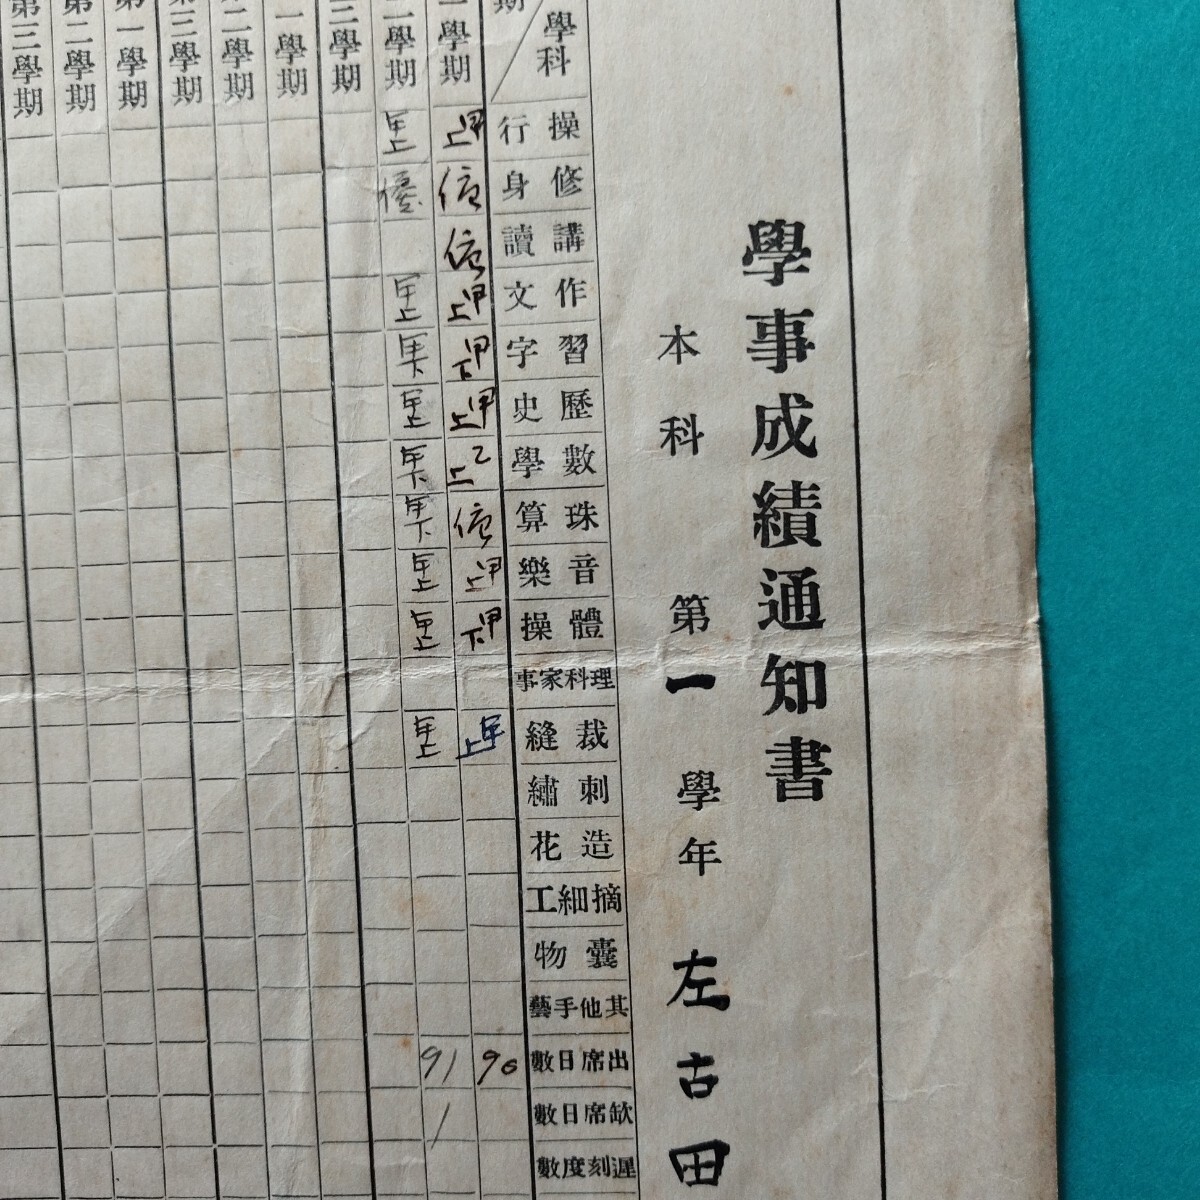 學事成績通知書
本科 第一學年 左古田
期
學科
操行
修身
講讀
作文
習字
歷史
數學
珠算
音樂
體操
理科家事
裁縫
刺繡
造花
摘細工
囊物
其他手藝
出席日數
缺席日數
遲刻度數
一學期
甲上
優
優
甲上
甲下
甲上
乙上
優
甲上
甲下
甲上
90
二學期
甲上
優
甲上
甲下
甲上
甲下
甲下
甲上
甲上
甲上
91
1
三學期
一學期
二學期
第三學期
第一學期
第二學期
第三學期